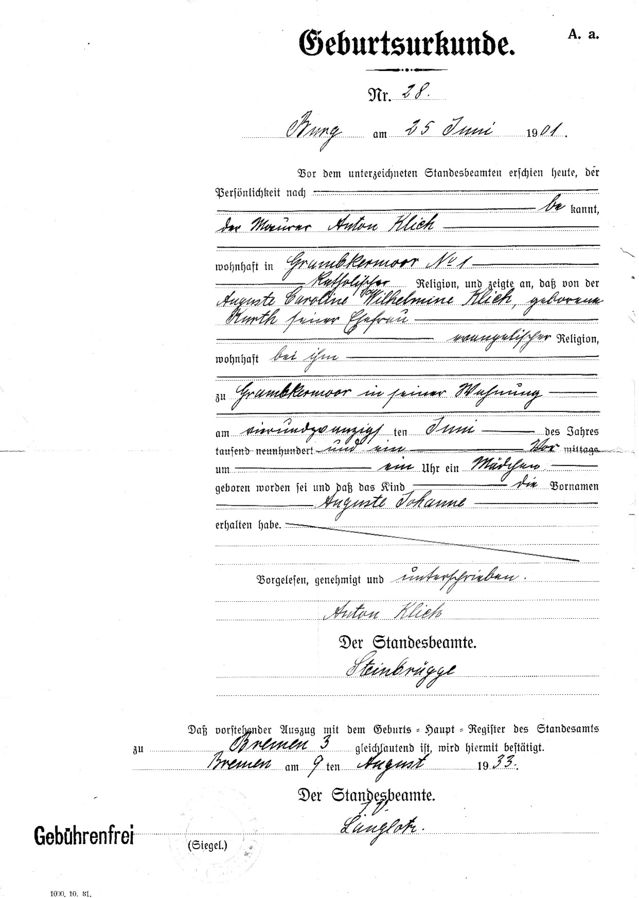 A. a.
Geburtsurkunde.
Nr. 28.
Burg am 25 Juni 1901.
Vor dem unterzeichneten Standesbeamten erschien heute, der
Persönlichkeit nach
be kannt,
der Maurer Anton Klich
wohnhaft in Grambkermoor No 1
katholischer Religion, und zeigte an, daß von der
Auguste Caroline Wilhelmine Klich, geborene
Kurth seiner Ehefrau
evangelischer Religion,
wohnhaft bei ihm
zu Grambkermoor in seiner Wohnung
am vierundzwanzig ten Juni des Jahres
tausend neunhundert und ein Vor mittags
um ein Uhr ein Mädchen
geboren worden sei und daß das Kind die Vornamen
Auguste Johanne
erhalten habe.
Vorgelesen, genehmigt und unterschrieben.
Anton Klich
Der Standesbeamte.
Steinbrügge
Daß vorstehender Auszug mit dem Geburts-Haupt-Register des Standesamts
zu Bremen 3 gleichlautend ist, wird hiermit bestätigt.
Bremen am 9 ten August 1933.
Der Standesbeamte.
Gebührenfrei
(Siegel.)
1000. 10. 31.